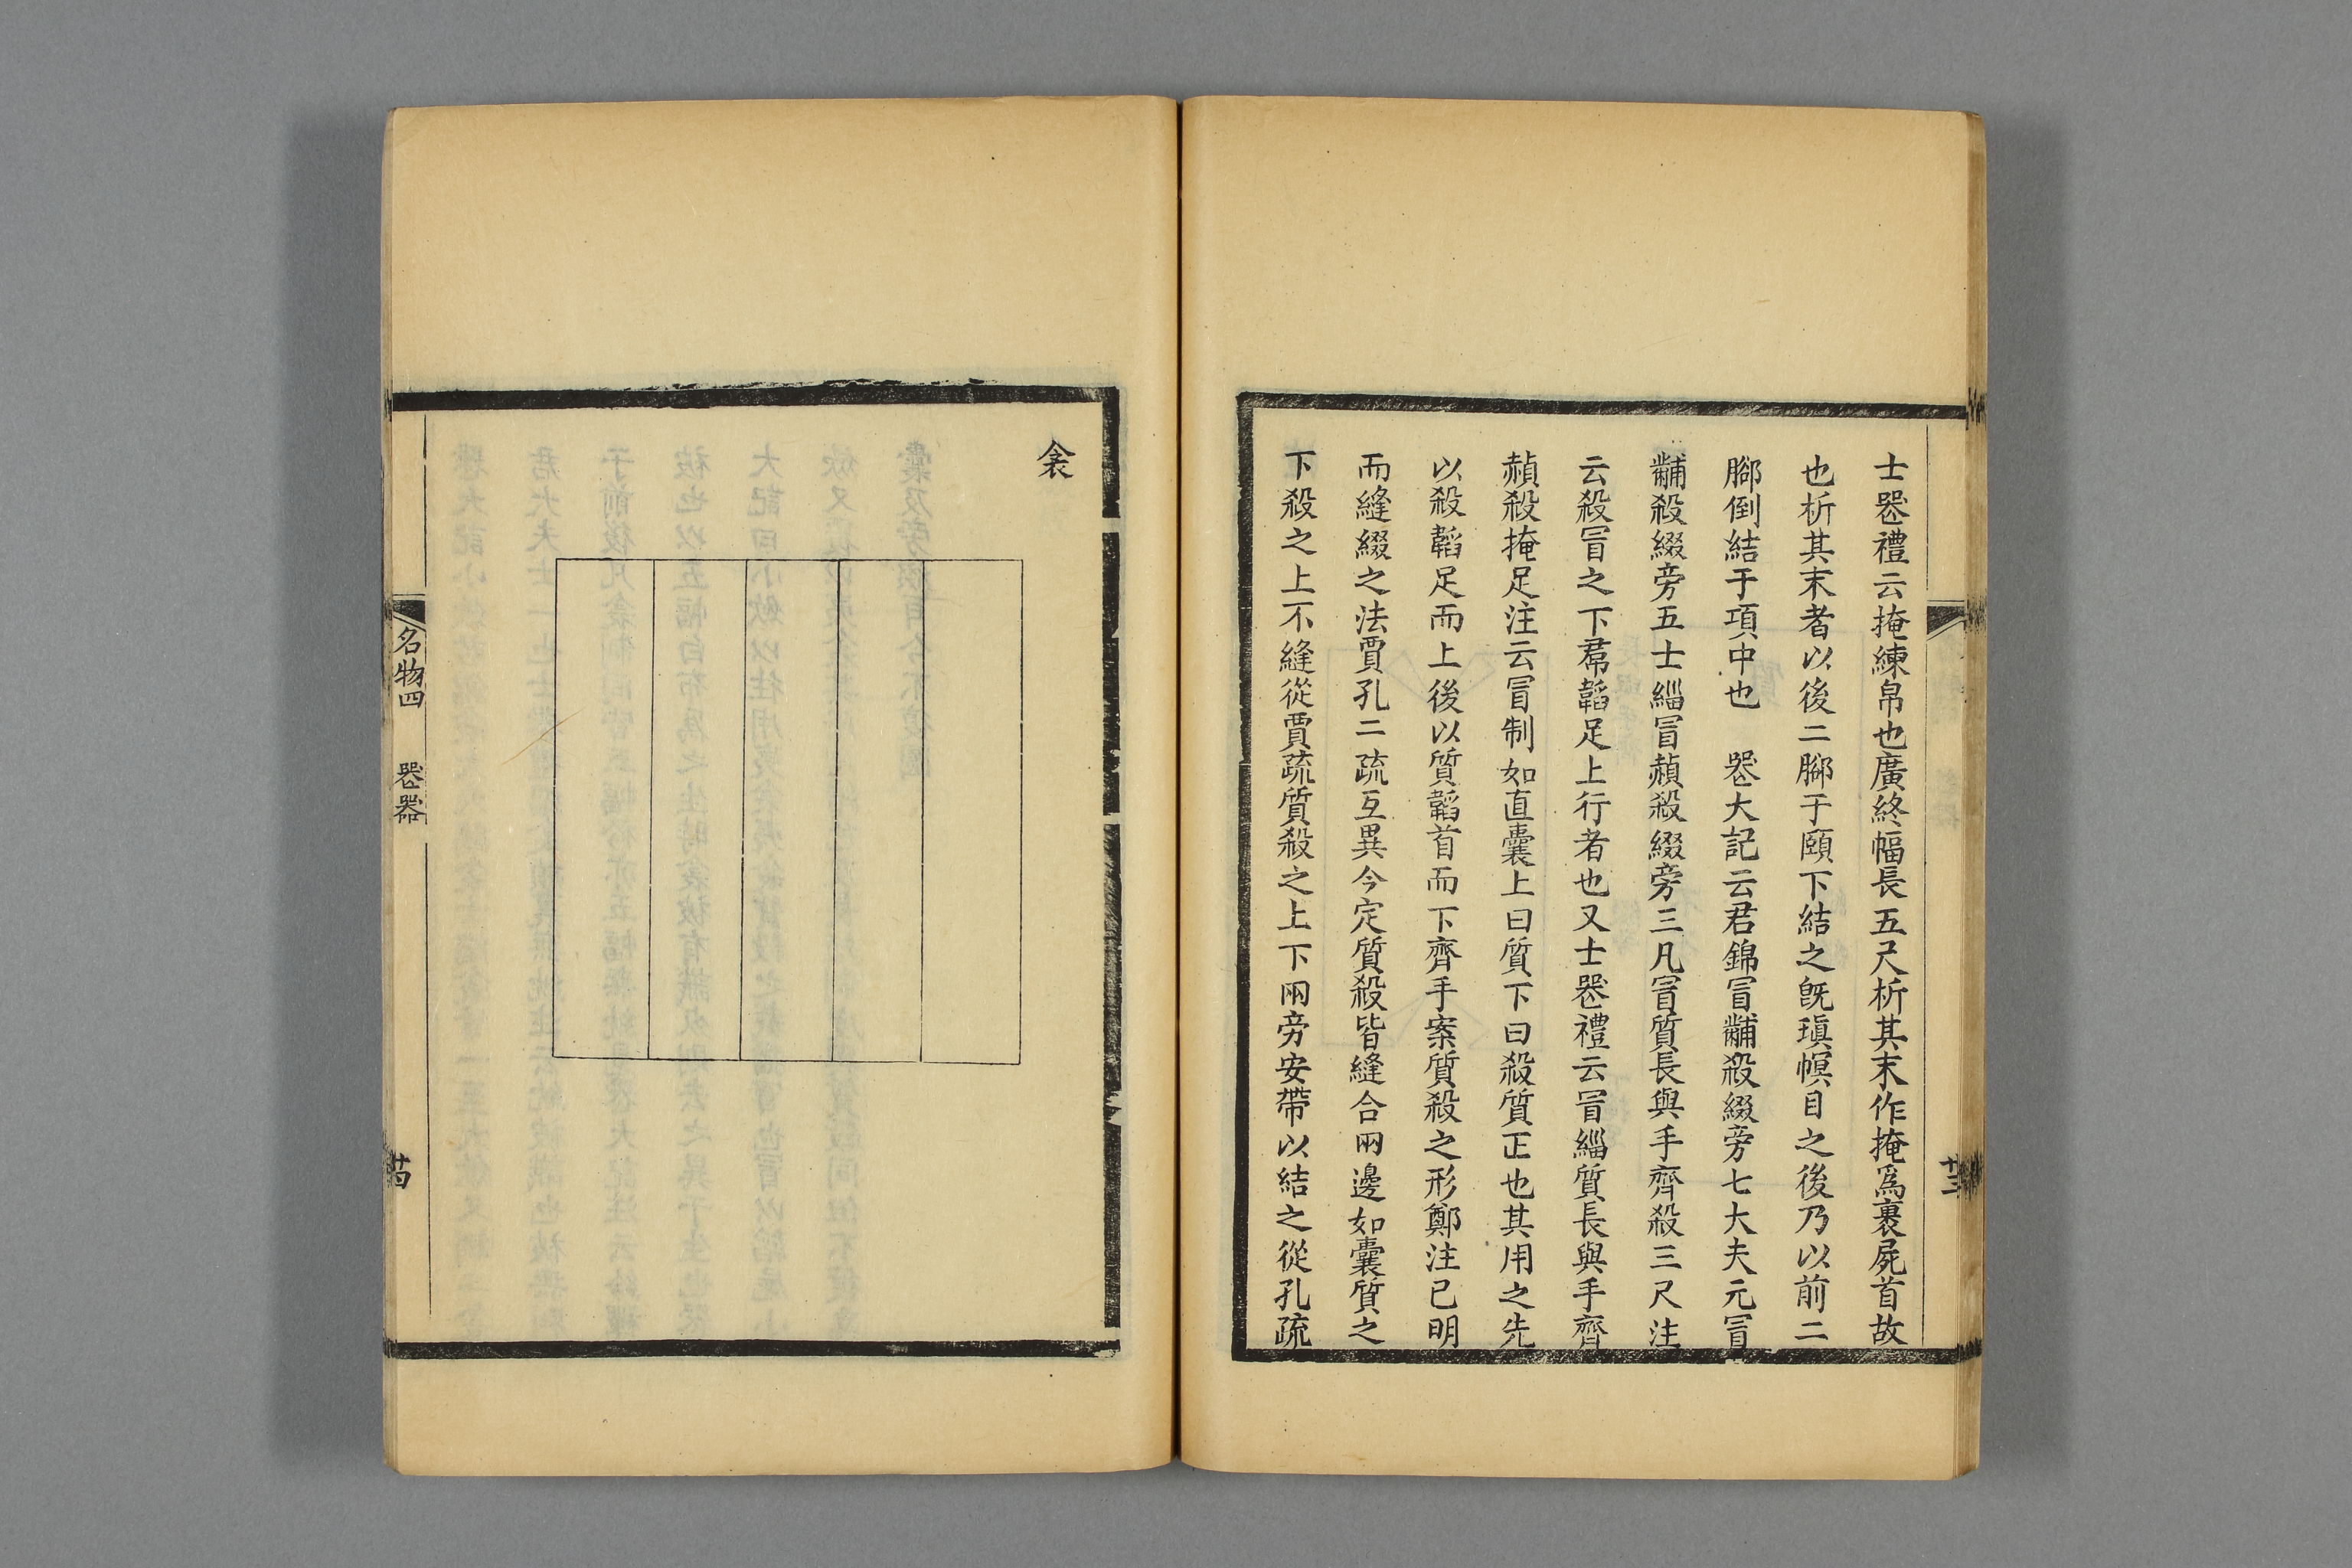 士䘮禮云掩練帛也廣終幅長五尺析其末作掩爲裹屍首故
也析其末者以後二腳于頤下結之旣瑱幎目之後乃以前二
腳倒結于項中也　䘮大記云君錦冒黼殺綴旁七大夫元冒
黼殺綴旁五士緇冒赬殺綴旁三凡冒質長與手齊殺三尺注
云殺冒之下帬韜足上行者也又士䘮禮云冒緇質長與手齊
赬殺掩足注云冒制如直囊上曰質下曰殺質正也其用之先
以殺韜足而上後以質韜首而下齊手案質殺之形鄭注已明
而縫綴之法賈孔二疏互異今定質殺皆縫合兩邊如囊質之
下殺之上不縫從賈疏質殺之上下兩旁安帶以結之從孔疏
十三
衾
名物四　䘮器